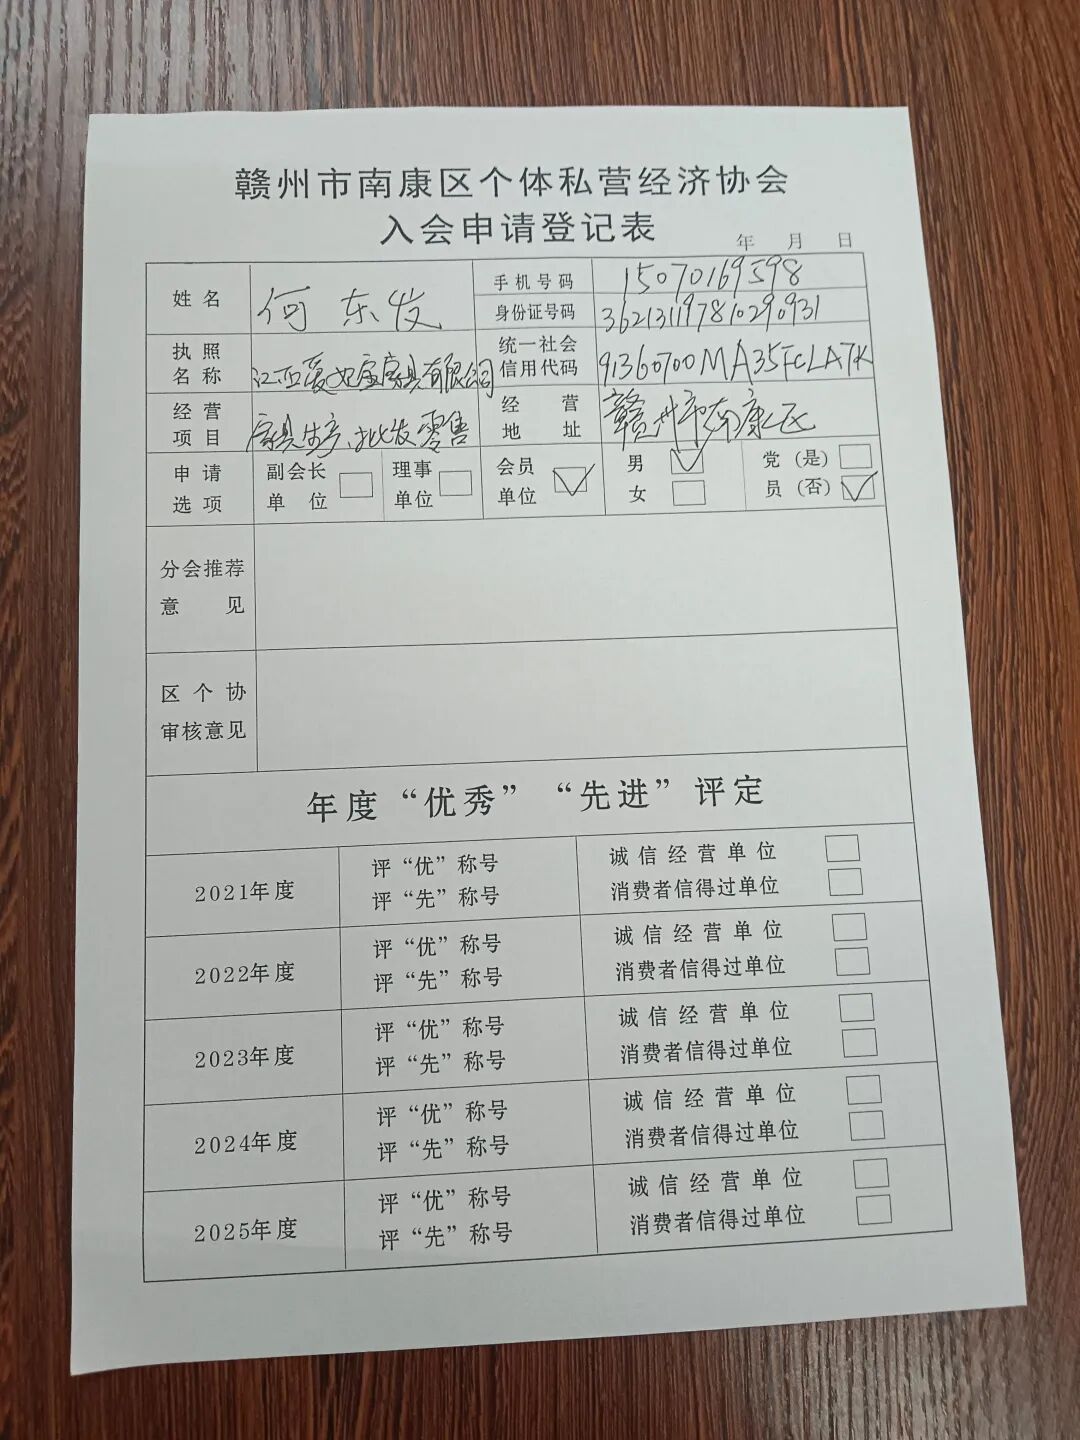 赣州市南康区个体私营经济协会
入会申请登记表
年 月 日
姓名 何东发 手机号码 15070169598
身份证号码 362131197810290931
执照名称 江西爱妃家具有限公司 统一社会信用代码 91360700MA35FCLA7K
经营项目 家具生产、批发零售 经营地址 赣州市南康区
申请选项 副会长单位 理事单位 会员单位 男 女 党员 (是) (否)
分会推荐意见
区个协审核意见
年度“优秀”“先进”评定
2021年度 评“优”称号 诚信经营单位
评“先”称号 消费者信得过单位
2022年度 评“优”称号 诚信经营单位
评“先”称号 消费者信得过单位
2023年度 评“优”称号 诚信经营单位
评“先”称号 消费者信得过单位
2024年度 评“优”称号 诚信经营单位
评“先”称号 消费者信得过单位
2025年度 评“优”称号 诚信经营单位
评“先”称号 消费者信得过单位